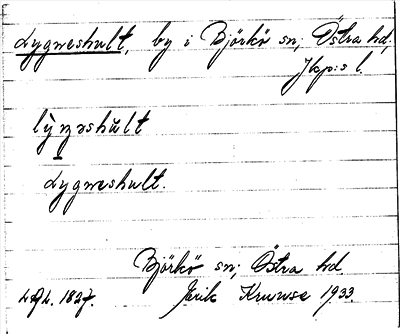 Lygneshult, by i Björkö sn; Östra hd,
Jkp:s l.
Lygneshult.
Björkö sn; Östra hd.
1827. Erik Kruuse 1933.